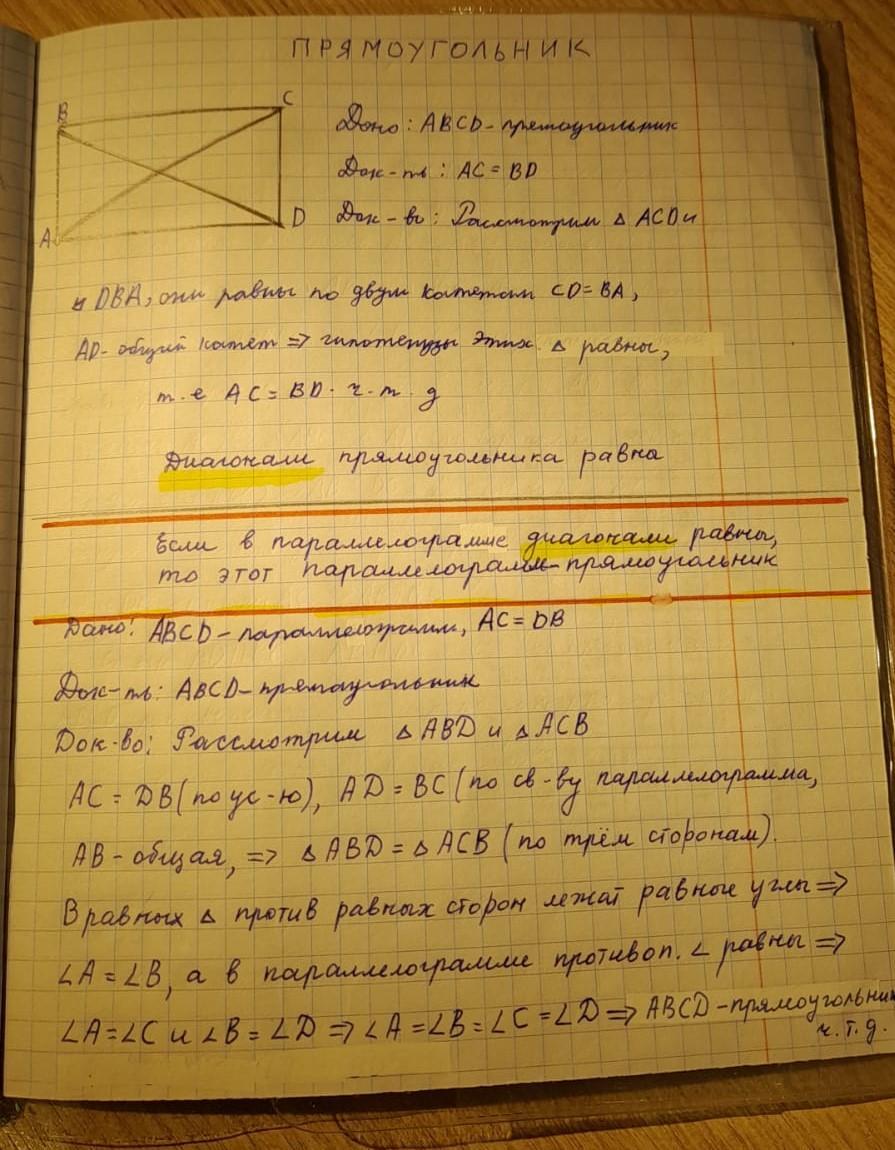 ПРЯМОУГОЛЬНИК
B
C
A
D
Дано: ABCD - прямоугольник
Док-ть: AC = BD
Док-во: Рассмотрим △ ACD и
DBA, они равны по двум катетам CD = BA,
AD - общий катет => гипотенузы этих △ равны,
т.е AC = BD. ч.т.д
Диагонали прямоугольника равна
Если в параллелограмме диагонали равны,
то этот параллелограмм - прямоугольник
Дано: ABCD - параллелограмм, AC = DB
Док-ть: ABCD - прямоугольник
Док-во: Рассмотрим △ ABD и △ ACB
AC = DB (по ус-ю), AD = BC (по св-ву параллелограмма,
AB - общая, => △ ABD = △ ACB (по трём сторонам).
В равных △ против равных сторон лежат равные углы =>
∠A = ∠B, а в параллелограмме противоп. ∠ равны =>
∠A = ∠C и ∠B = ∠D => ∠A = ∠B = ∠C = ∠D => ABCD - прямоугольник
ч.т.д.